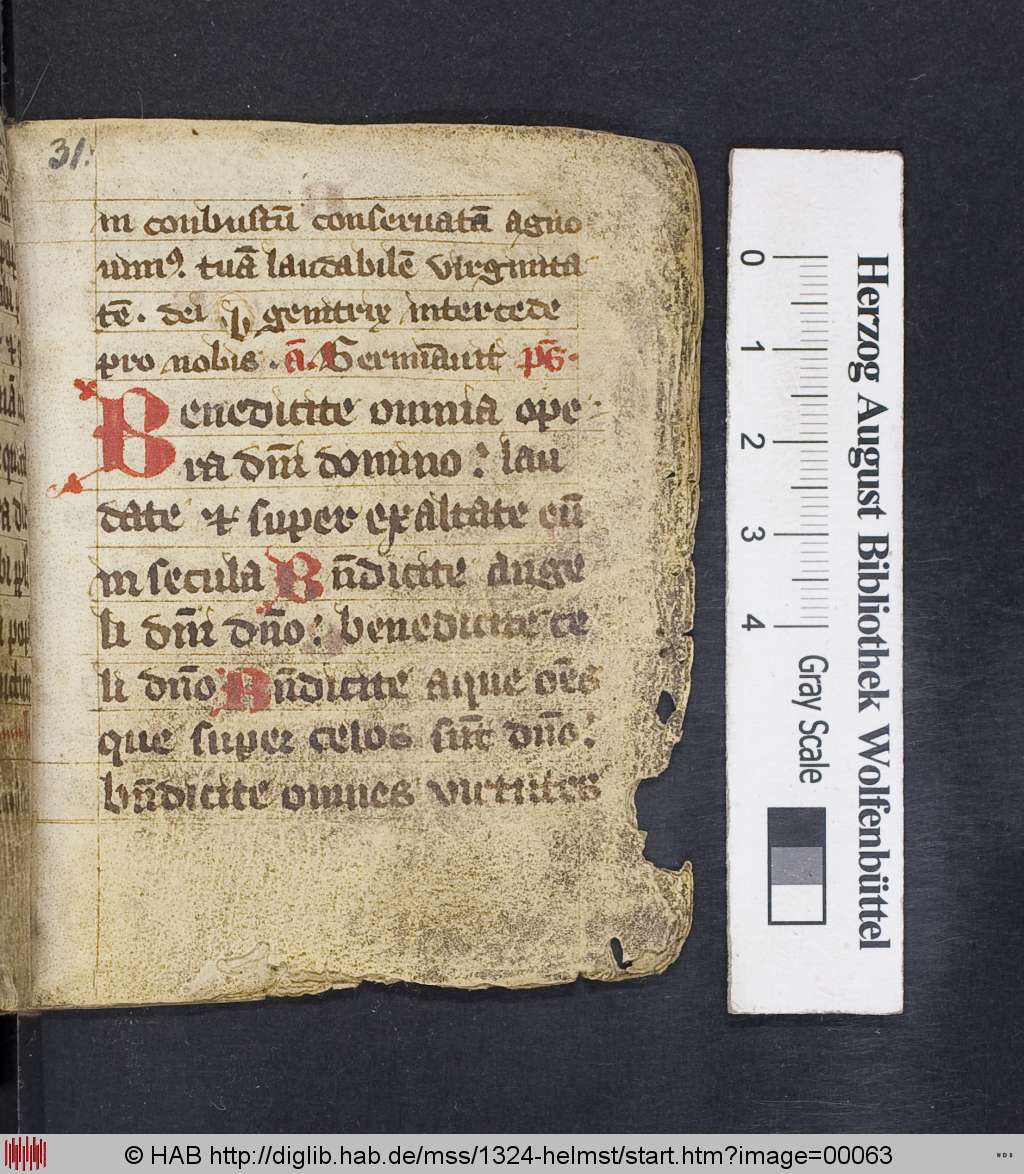 31.
in conbustū conseruatā agno
uimꝰ. tuā laudabilē virginita
tē. dei genitrix intercede
pro nobis. ā. Germīauit pꝭ.
Benedicite omnia ope
ra dn̄i domino: lau
date et super exaltate eū
in secula Bn̄dicite ange
li dn̄i dn̄o: benedicite ce
li dn̄o Bn̄dicite aque oēs
que super celos sūt dn̄o:
bn̄dicite omnes virtutes
0 1 2 3 4
Gray Scale
Herzog August Bibliothek Wolfenbüttel
© HAB http://diglib.hab.de/mss/1324-helmst/start.htm?image=00063